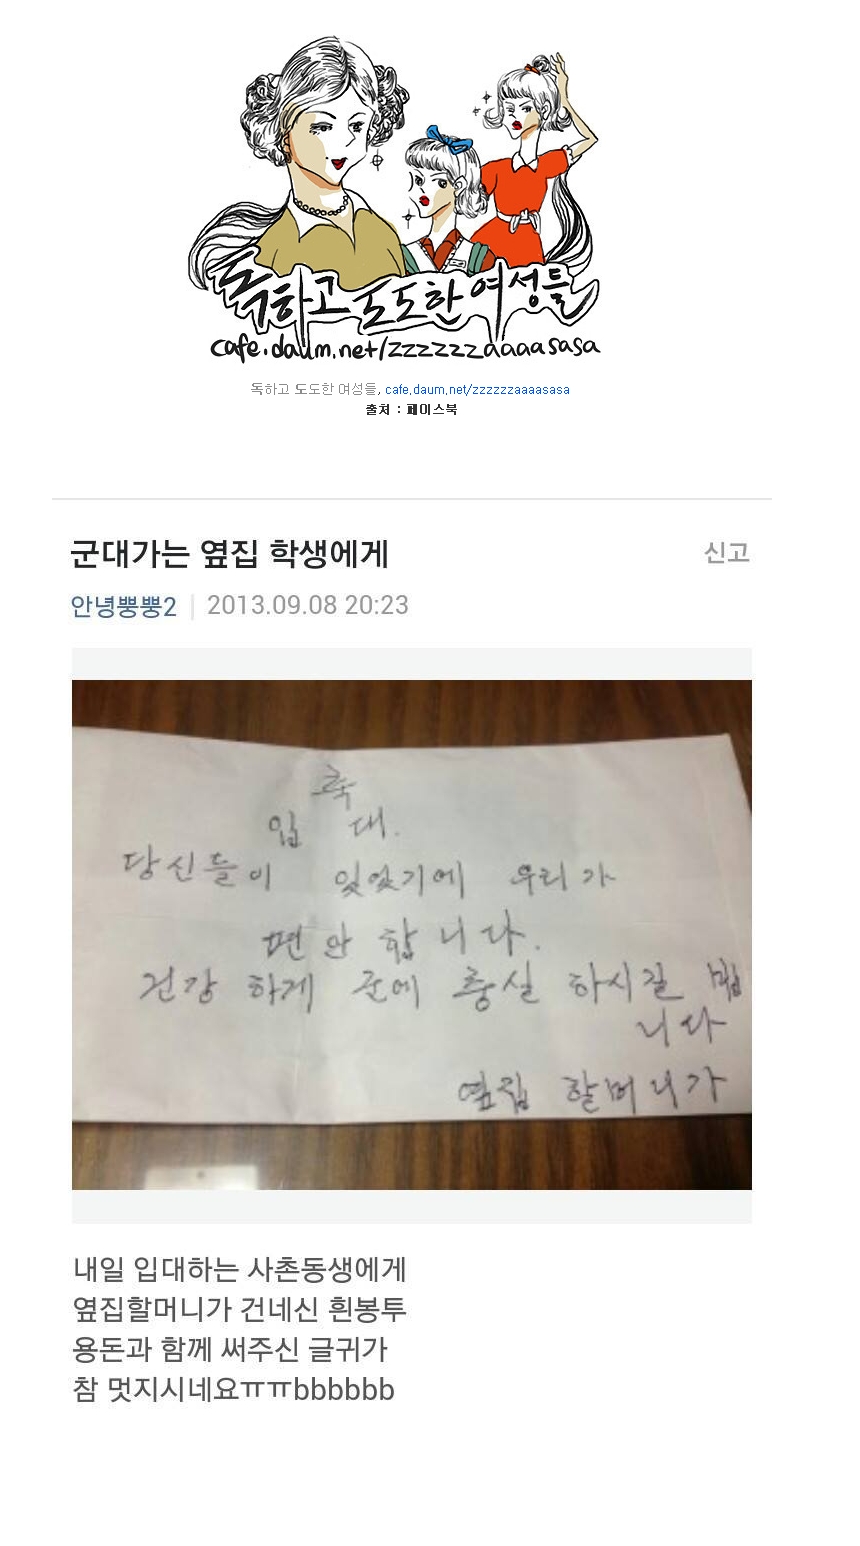 독하고 도도한 여성들
cafe.daum.net/zzzzzzaaaasasa
독하고 도도한 여성들, cafe.daum.net/zzzzzzaaaasasa
출처 : 페이스북
군대가는 옆집 학생에게
신고
안녕뿡뿡2
2013.09.08 20:23
축
입 대.
당신들이 있었기에 우리가
편안합니다.
건강 하게 군에 충실 하시길 빕
니다
옆집 할머니가
내일 입대하는 사촌동생에게
옆집할머니가 건네신 흰봉투
용돈과 함께 써주신 글귀가
참 멋지시네요ㅠㅠbbbbbb